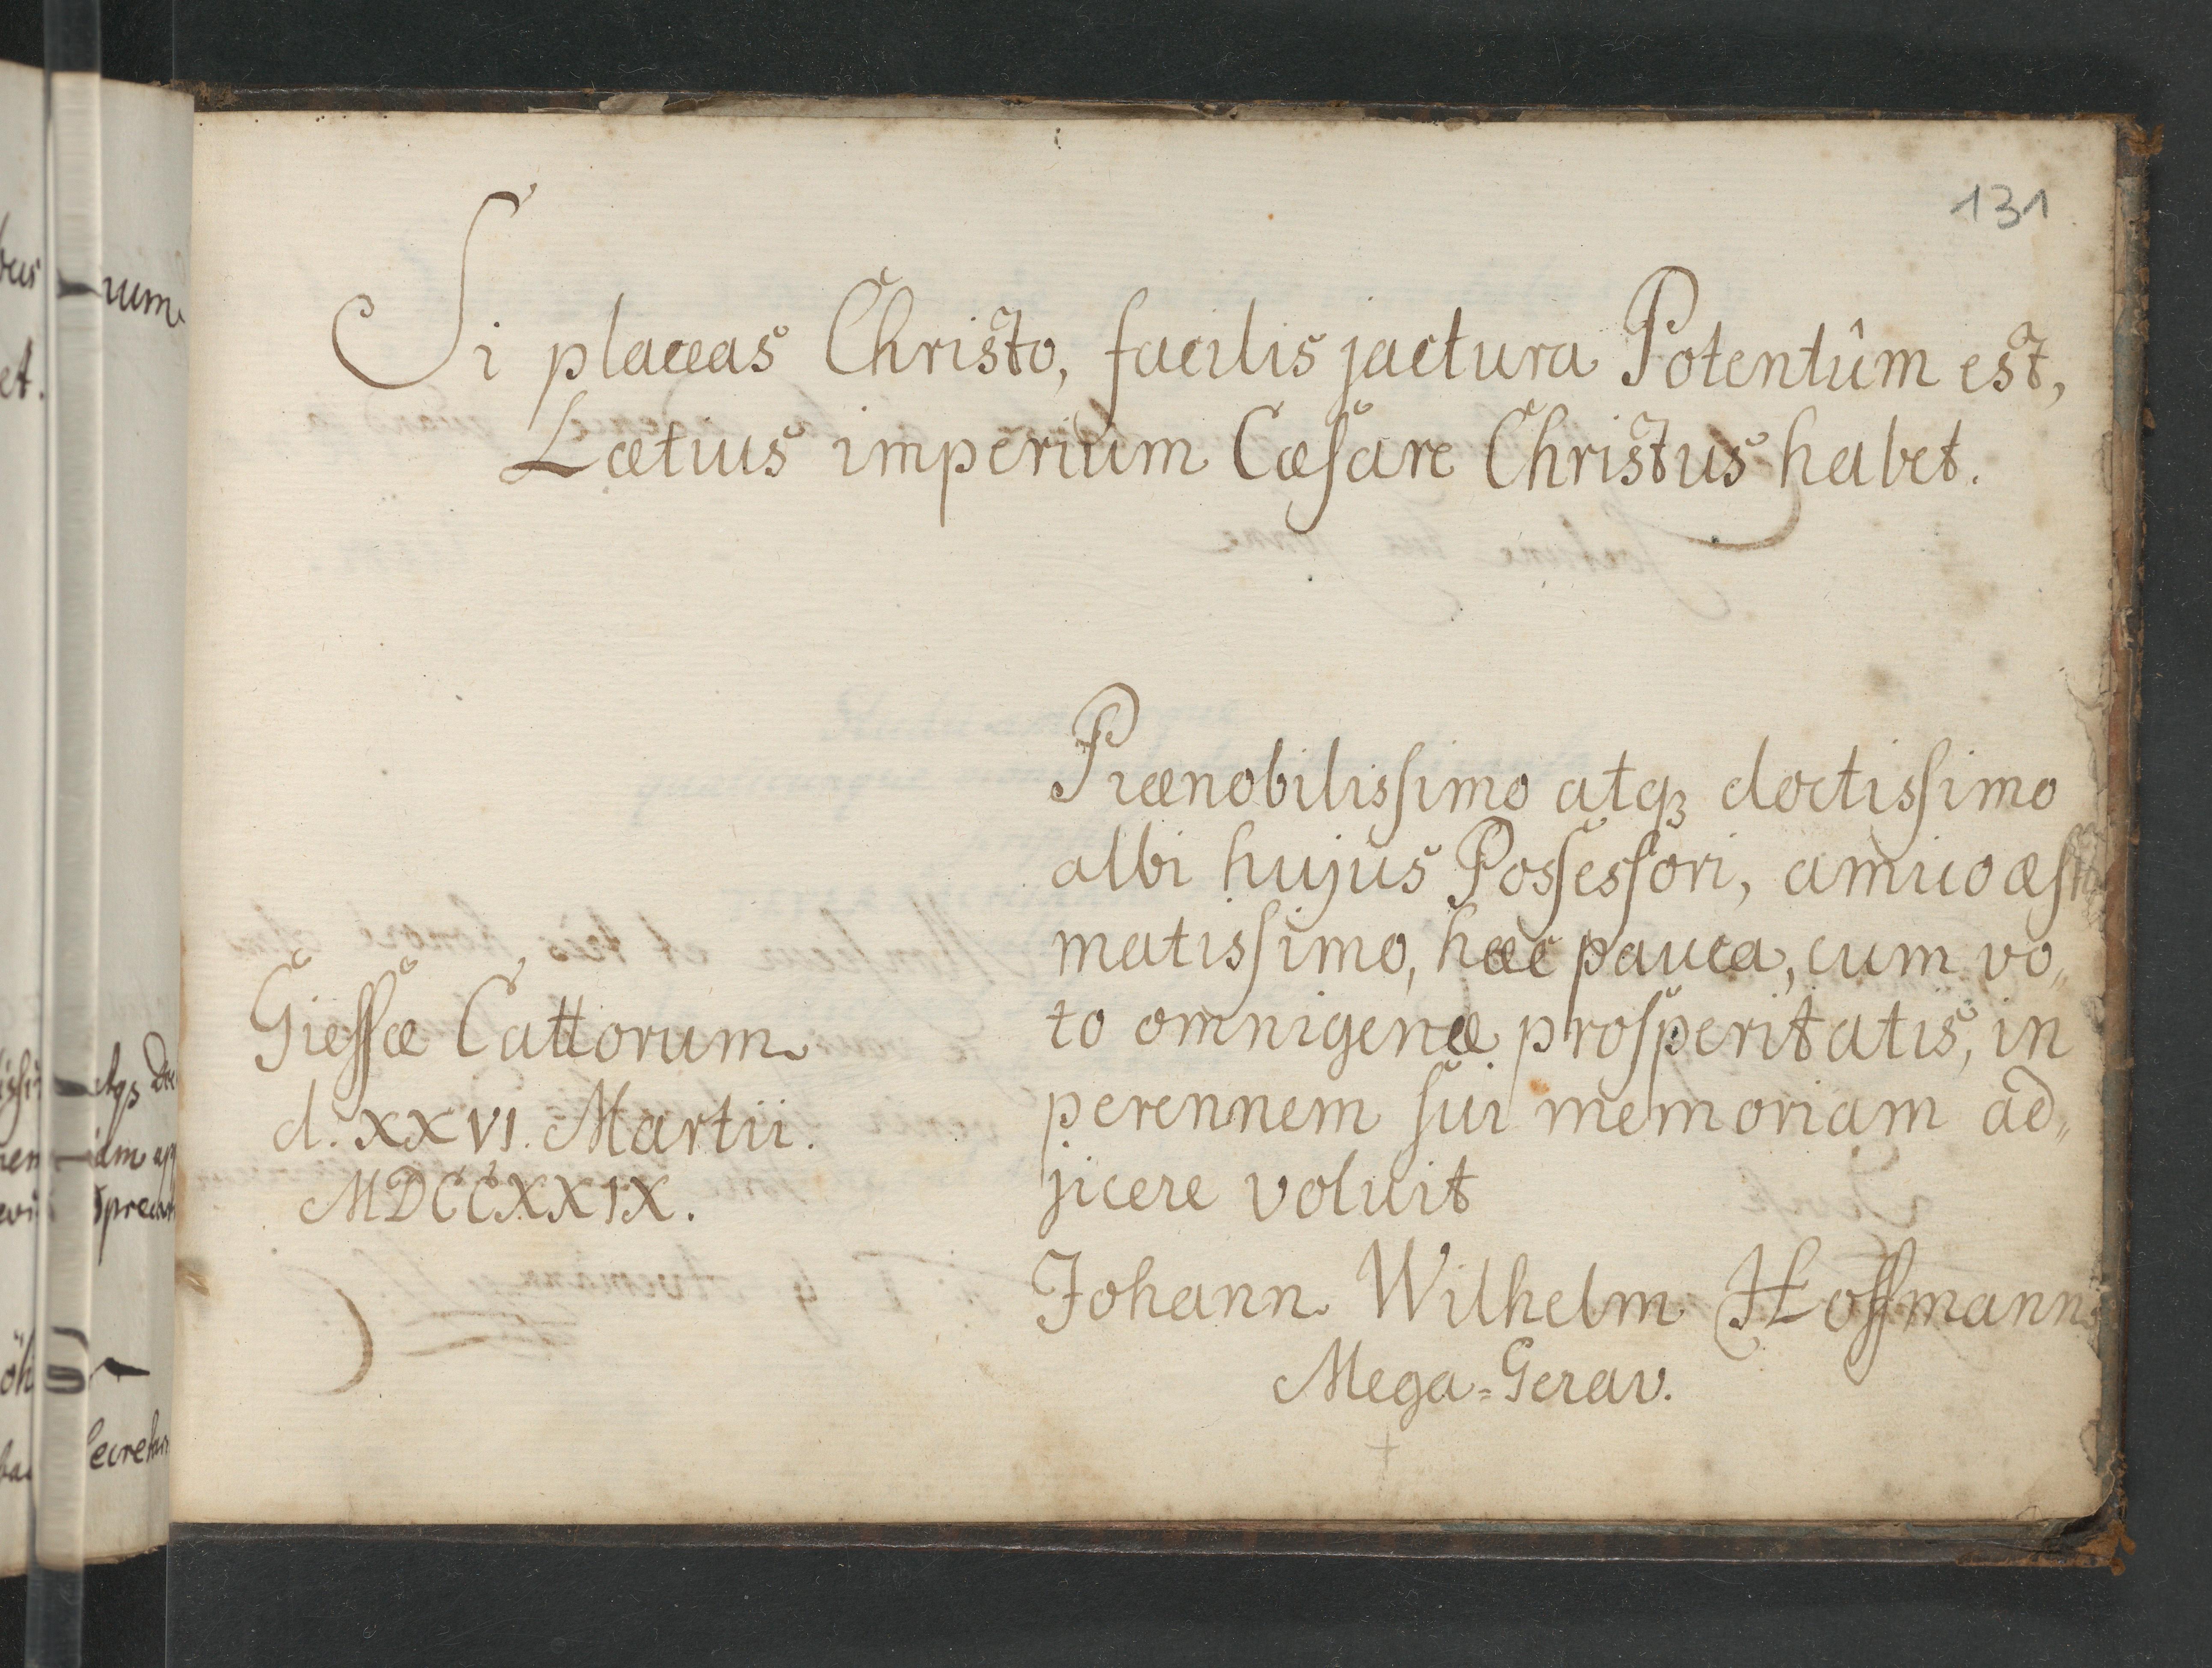 131
Si placeas Christo, facilis jactura Potentûm est,
Lætius imperium Cæſare Christus habet.
Prænobilisſimo atqꝫ doctisſimo
albi hujus Posſesſori, amico æſti
matisſimo, hæc pauca, cum vo„
to omnigenæ proſperitatis, in
perennem ſui memoriam ad„
jicere voluit
Johann Wilhelm Hoffmann
Mega=Gerav.
Gieſſæ Cattorum
d. XXVI. Martii.
MDCCXXIX.